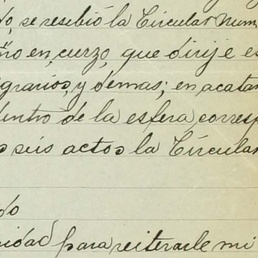 do, se resibió la Circular num
ño en, curzo, que dirije es
grarios, y demas; en acatam
dentro de la esfera corresp
s seis actos la Circular
do
nidad para reiterarle mi